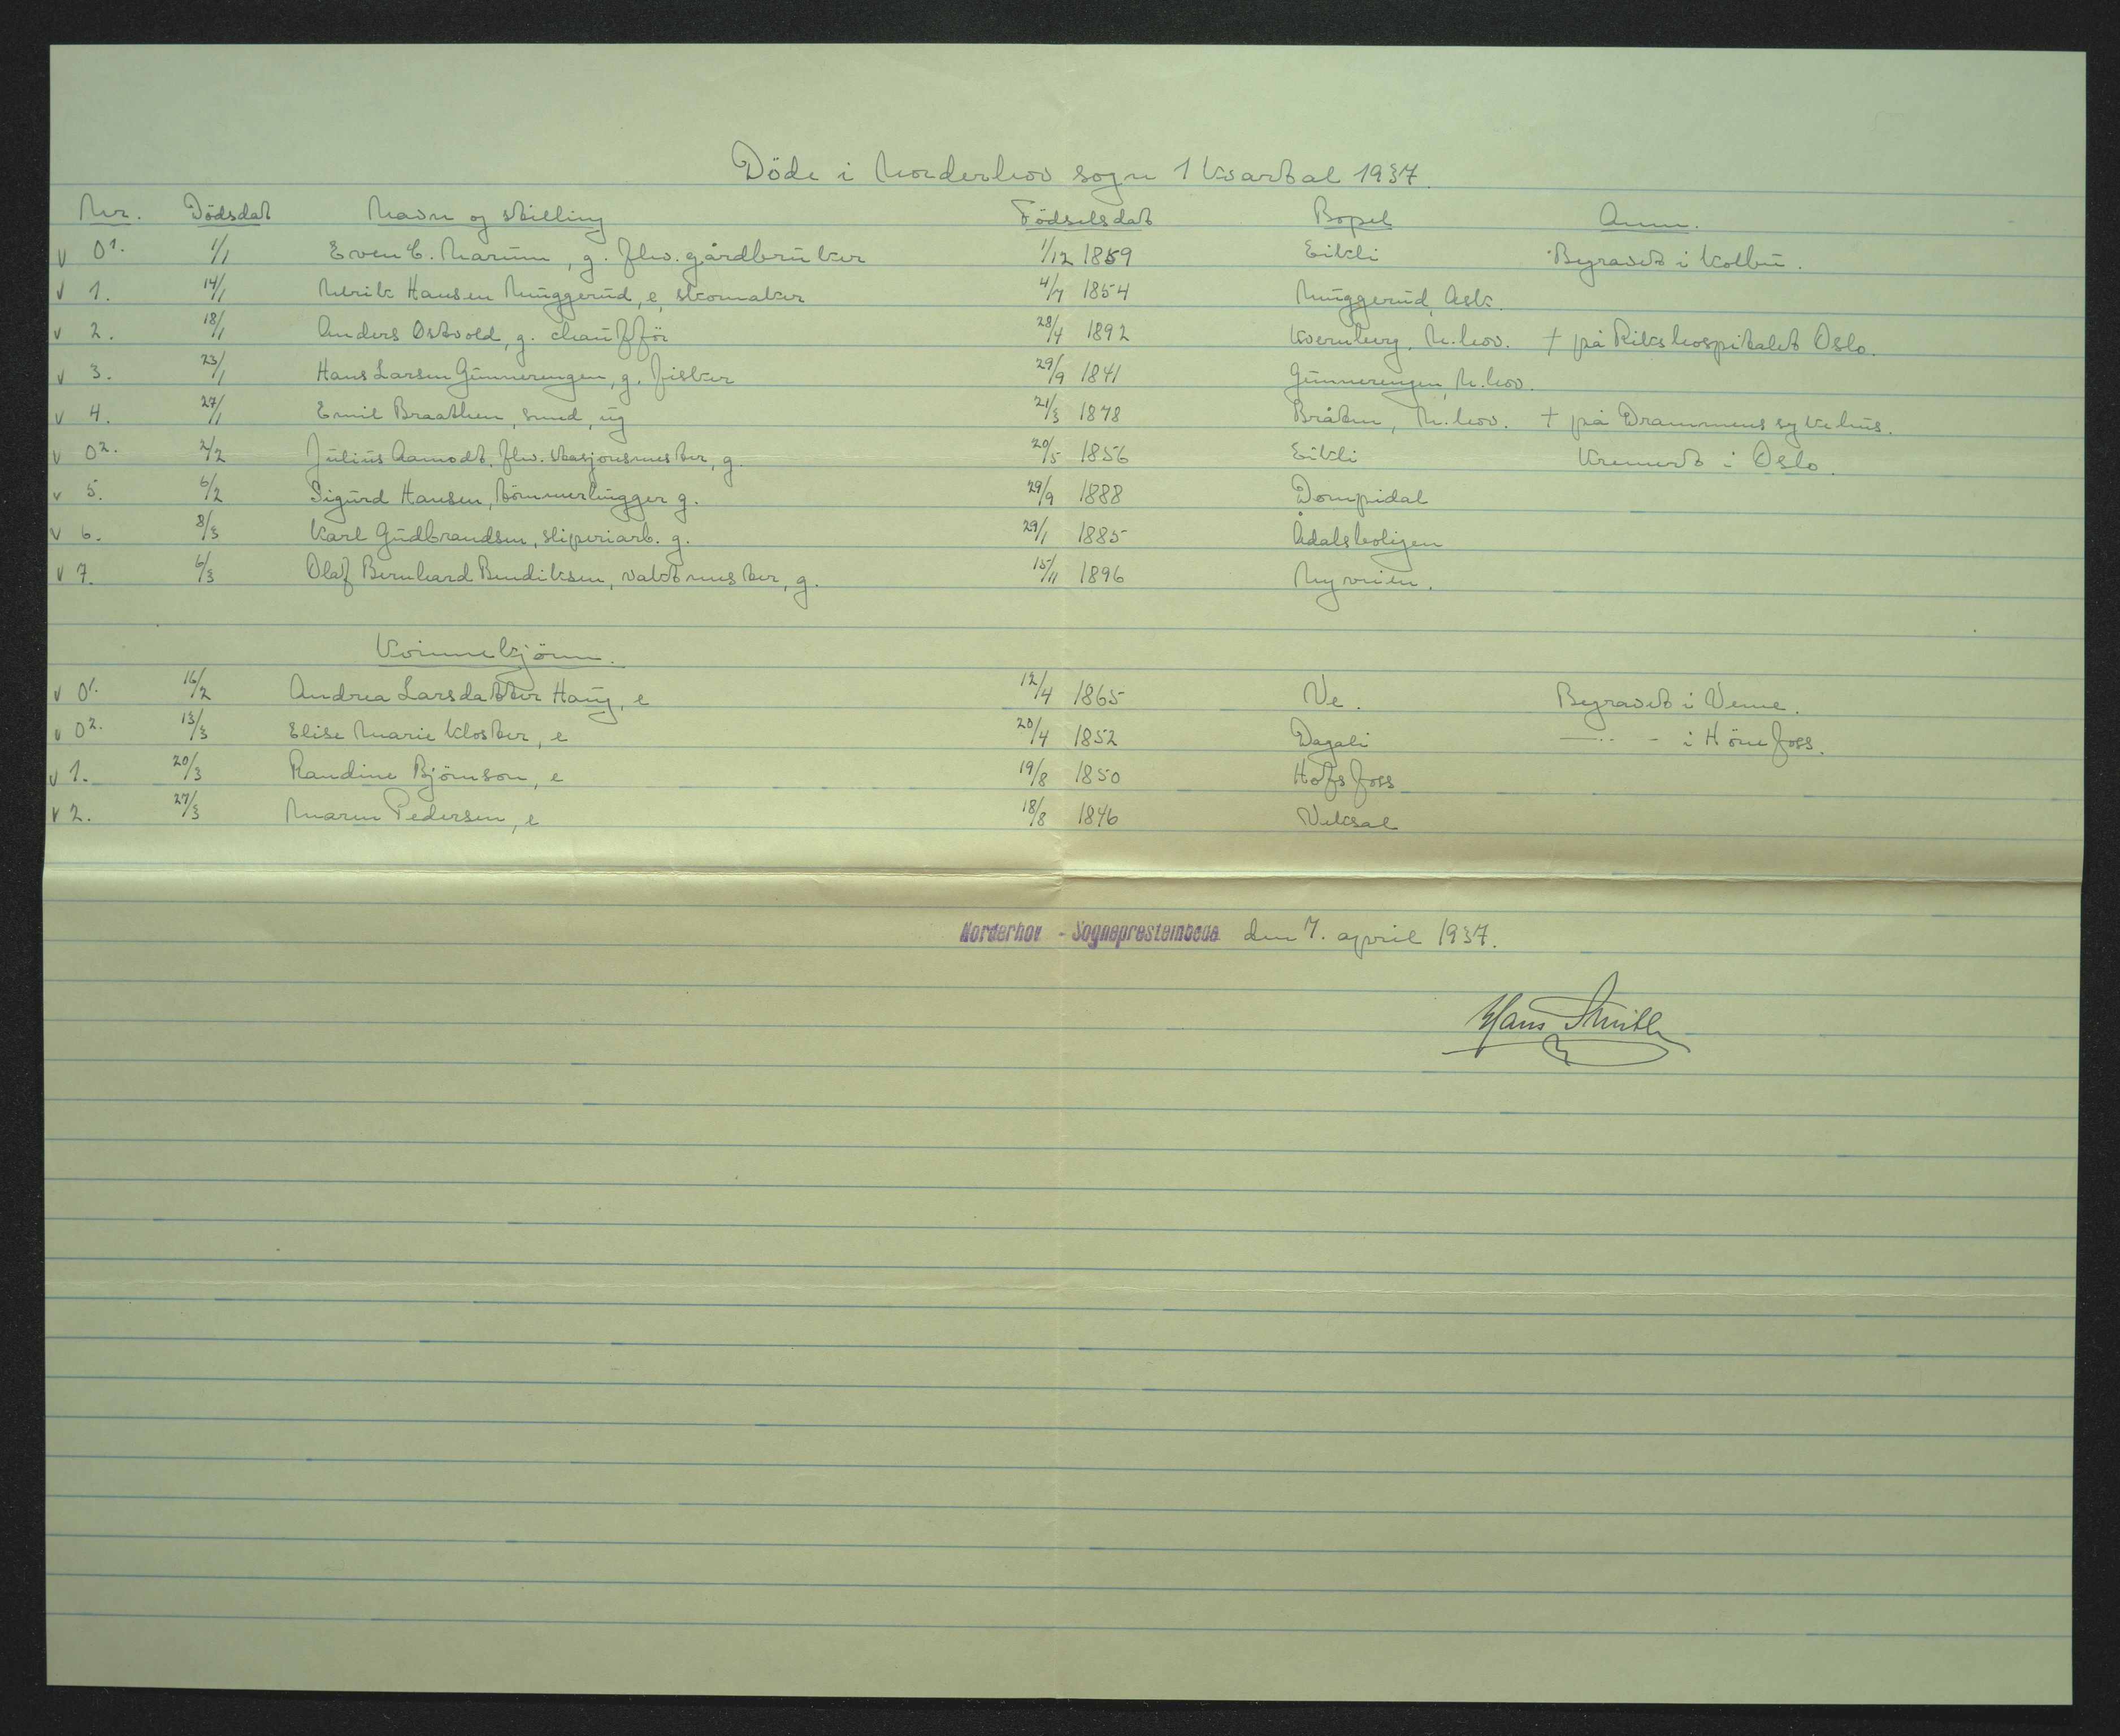 Döde i Norderhov sogn 1 kvartal 1937.
Nr. Dödsdat Navn og stilling Födselsdat Bopel Anm.
v 01. 1/1 Even E. Narum, g. fhv. gårdbruker 1/12 1859 Eikli Begravet i Kolbu.
v 1. 14/1 Ulrik Hansen Muggerud, e, skomaker 4/7 1854 Muggerud, Ask.
v 2. 18/1 Anders Ostvold, g. chaufför 28/4 1892 Kvernberg, N.hov. † på Rikshospitalet Oslo.
v 3. 23/1 Hans Larsen Gunnerengen, g. fisker 29/9 1841 Gunnerengen, N.hov.
v 4. 27/1 Emil Braathen, smed, ug 21/3 1878 Bråten, N.hov. † på Drammens sykehus.
v 02. 2/2 Julius Aamodt. fhv. stasjonsmester, g. 20/5 1856 Eikli Kremert i Oslo.
v 5. 6/2 Sigurd Hansen, tömmerhugger g. 29/9 1888 Dompidal
v 6. 8/3 Karl Gudbrandsen, sliperiarb. g. 29/1 1885 Ådalsboligen
v 7. 6/3 Olaf Bernhard Bendiksen, vaktmester, g. 15/11 1896 Myrveien.
Kvinnekjönn.
v 01. 16/2 Andrea Larsdatter Haug, e 12/4 1865 Ve. Begravet i Veme.
v 02. 13/3 Elise Marie Kloster, e 20/4 1852 Dagali —..— i Hönefoss.
v 1. 20/3 Randine Björnson, e 19/8 1850 Hofsfoss
v 2. 27/3 Maren Pedersen, e 18/8 1846 Veksal
Norderhov - Sogneprestembede den 7. april 1937.
Hans Smith